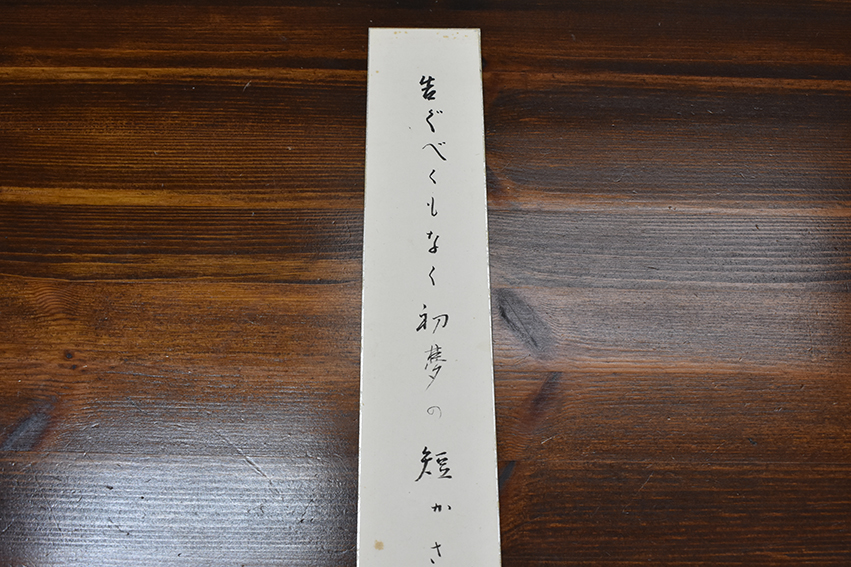 告ぐべくもなく初夢の短かさ